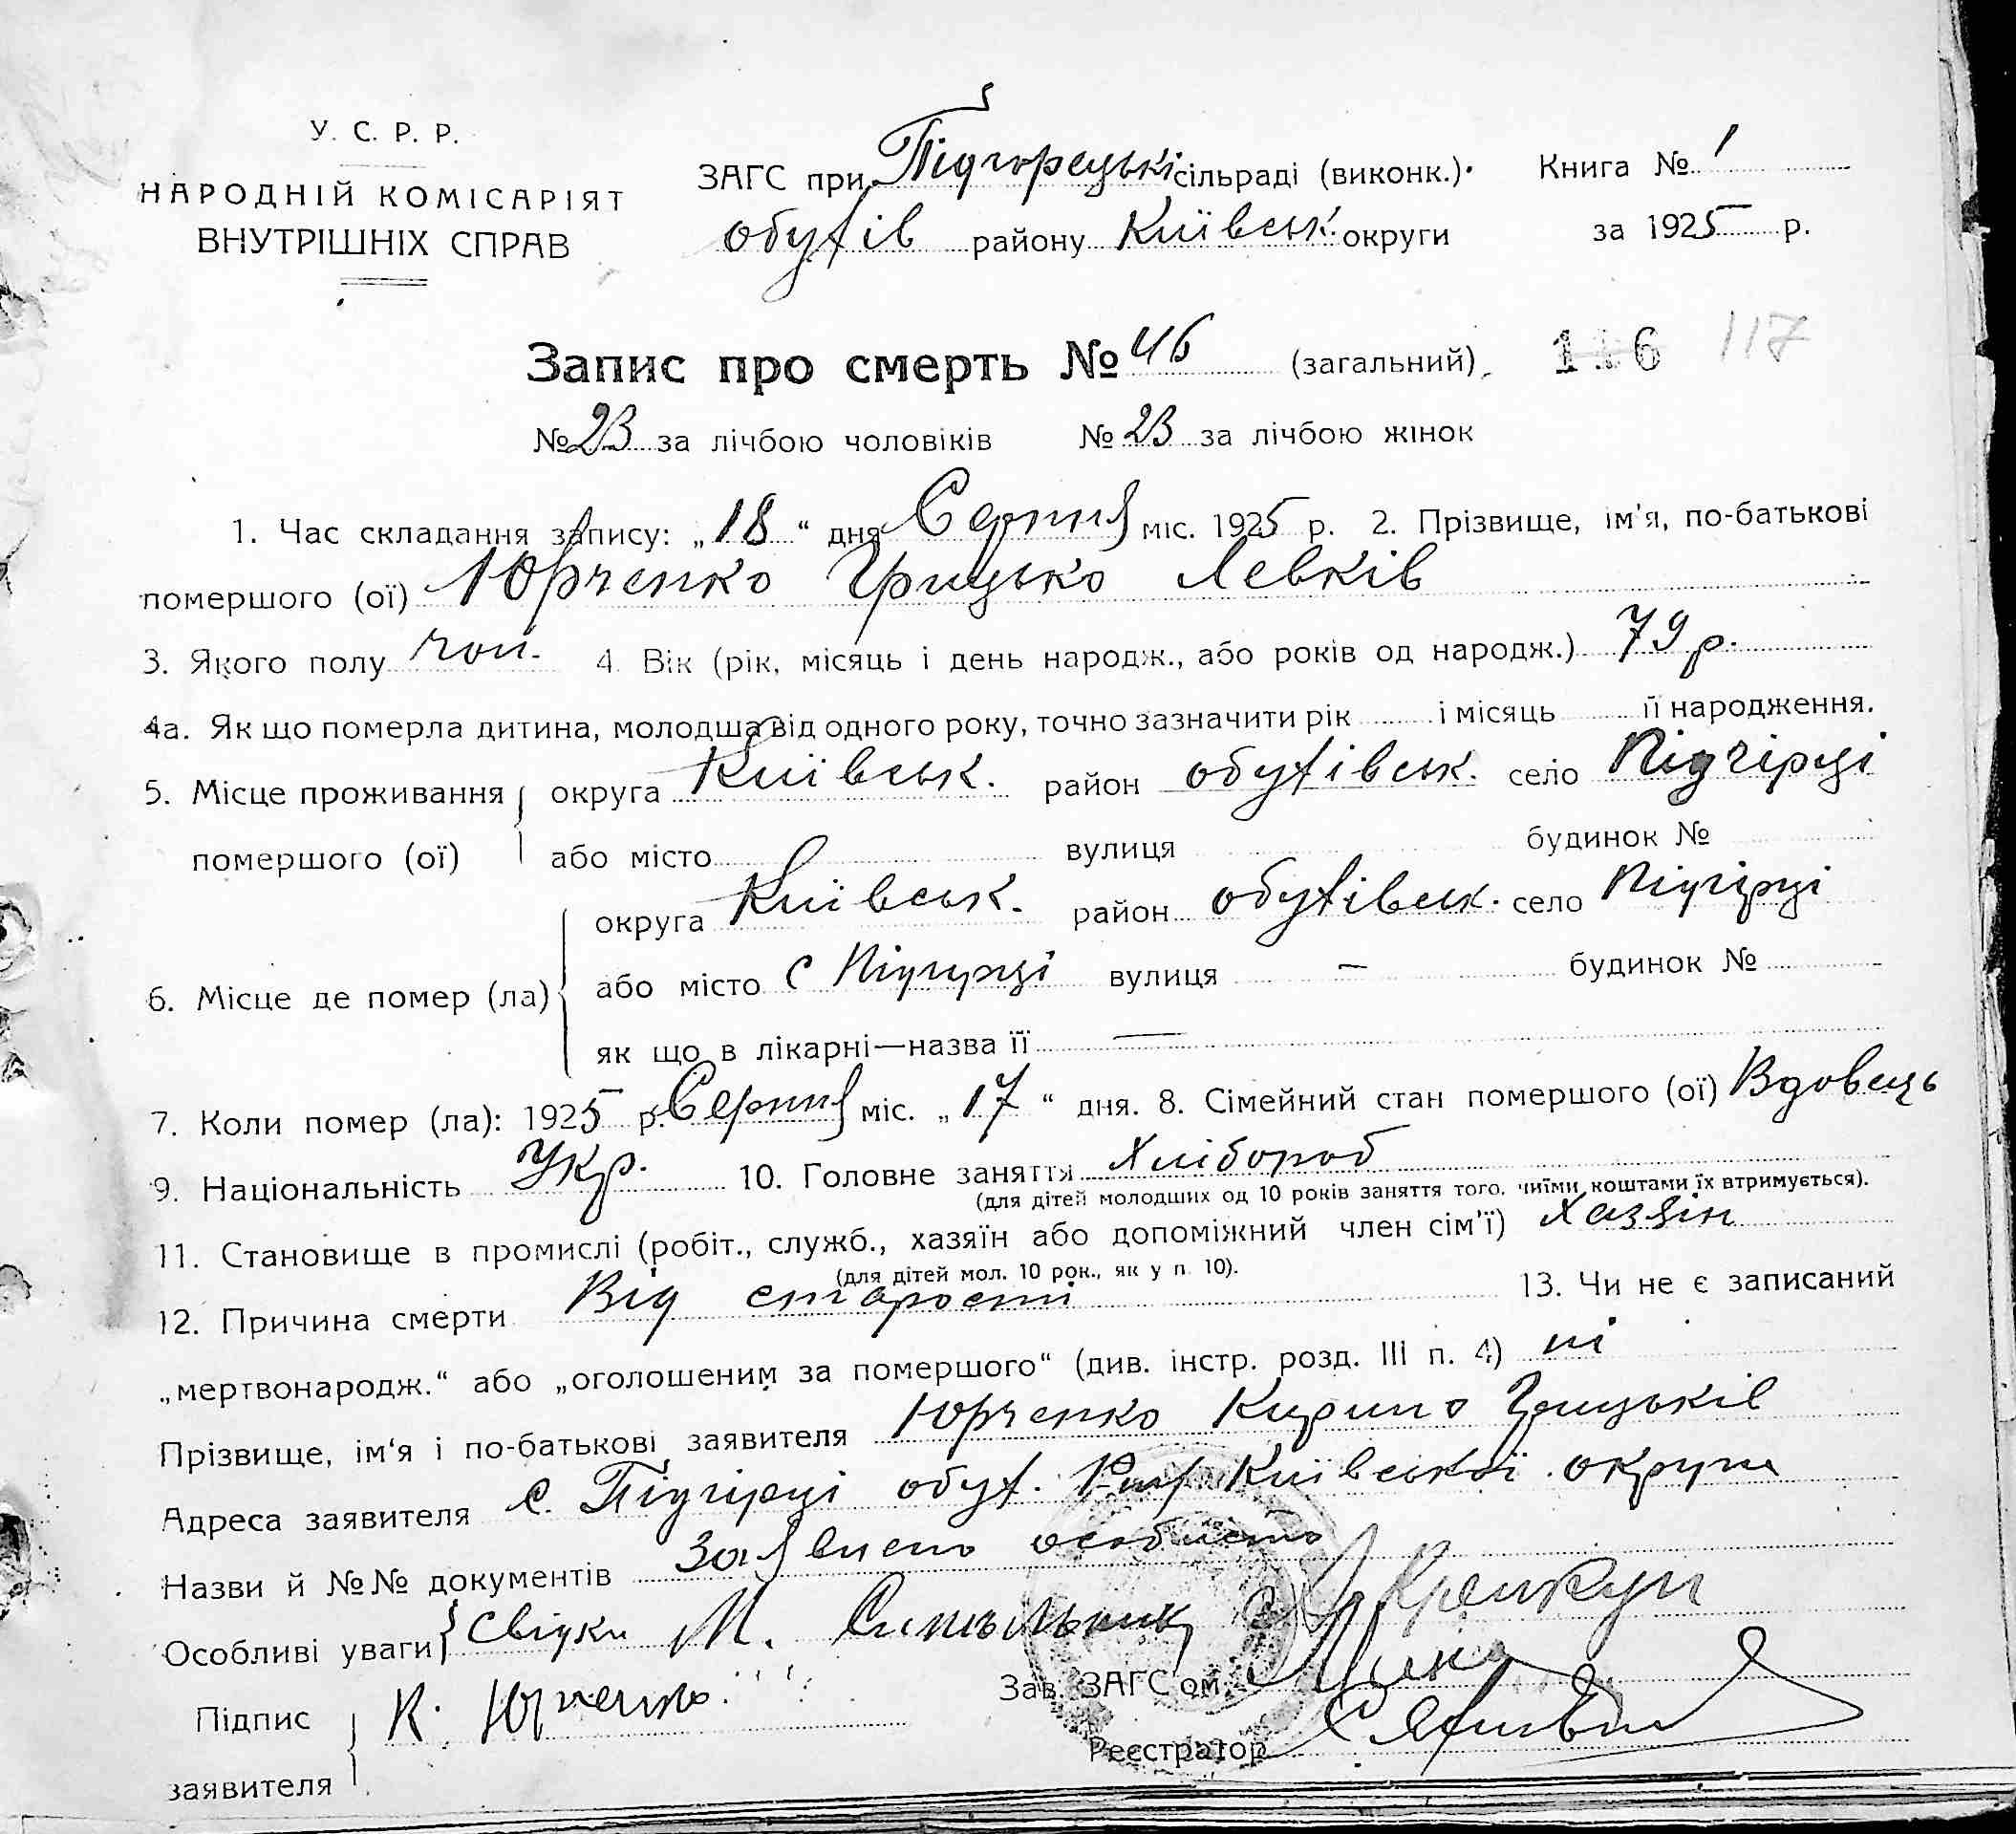 У. С. Р. Р.
НАРОДНІЙ КОМІСАРІЯТ
ВНУТРІШНІХ СПРАВ
ЗАГС при Підгорецькі сільраді (виконк.).
Книга № 1
обухів району Київськ. округи
за 1925 р.
Запис про смерть № 46 (загальний), 116 117
№ 23 за лічбою чоловіків № 23 за лічбою жінок
1. Час складання запису: „18“ дня Серпня міс. 1925 р. 2. Прізвище, ім'я, по-батькові
помершого (ої) Юрченко Грицько Левків
3. Якого полу чол. 4. Вік (рік, місяць і день народж., або років од народж.) 79 р.
4а. Як що померла дитина, молодша від одного року, точно зазначити рік і місяць її народження.
5. Місце проживання округа Київськ. район обухівськ. село Підгірці
помершого (ої) або місто вулиця будинок №
округа Київськ. район обухівськ. село Підгірці
6. Місце де помер (ла) або місто с Підгірці вулиця — будинок №
як що в лікарні—назва її —
7. Коли помер (ла): 1925 р. Серпня міс. „17“ дня. 8. Сімейний стан помершого (ої) Вдовець
9. Національність Укр. 10. Головне заняття Хлібороб
(для дітей молодших од 10 років заняття того, чиїми коштами їх втримується).
11. Становище в промислі (робіт., служб., хазяїн або допоміжний член сім'ї) Хазяін
(для дітей мол. 10 рок., як у п. 10).
12. Причина смерти Від старости 13. Чи не є записаний
„мертвонародж.“ або „оголошеним за помершого“ (див. інстр. розд. III п. 4) ні
Прізвище, ім'я і по-батькові заявителя Юрченко Кирило Грицьків
Адреса заявителя с. Підгірці обух. Київської округи
Назви й №№ документів Заявлено особисто
Особливі уваги Свідки М.
Підпис К. Юрченко
Зав. ЗАГС'ом
Реєстратор
заявителя